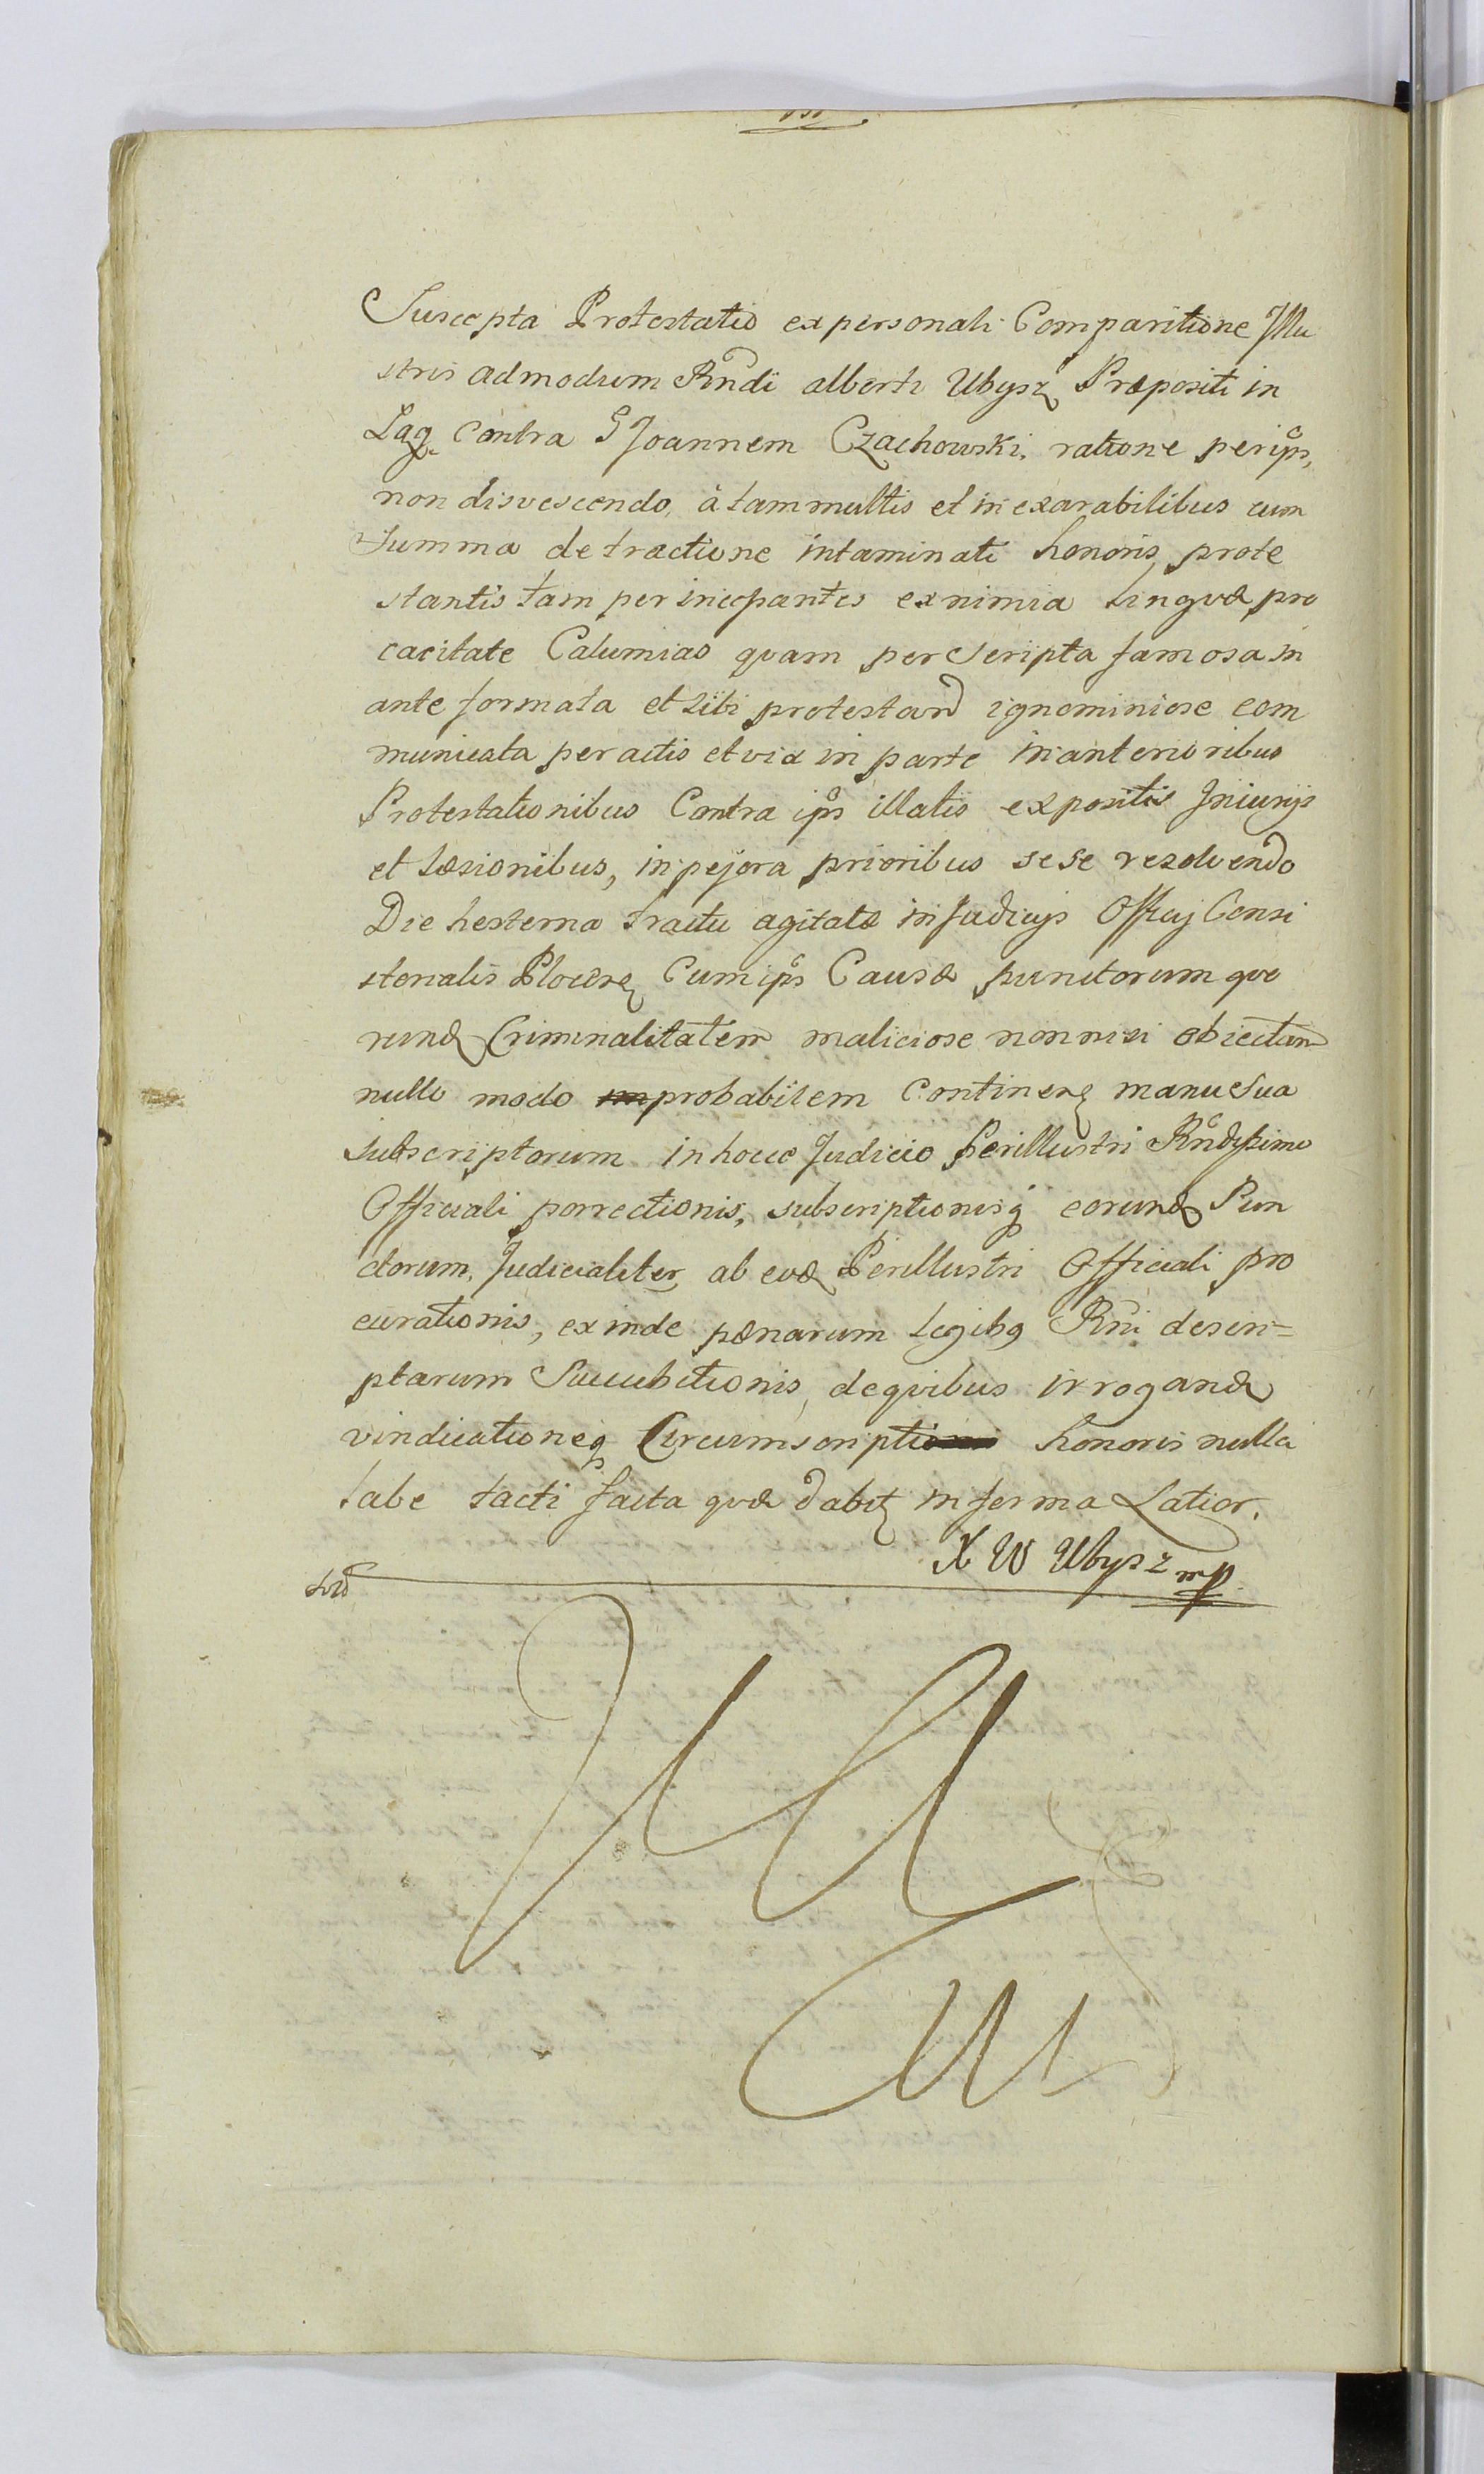 Suscepta Protestatio ex personali Comparitione Illu
stris admodum Rndi alberti Ubysz Præpositi in
Lag. Contra G Joannem Czachowski, ratione per ips,
non disvescendo, à tam multis et in exarabilibus cum
Summa detractione intaminati honoris prote
stantis tam per increpantes ex nimia Lingvæ pro
cacitate Calumias qvam per Scripta famosa in
ante formata et sibi protestand ignominiose com
municata peractis et vix in parte in anterioribus
Protestationibus Contra ips illatis expositis Iniurijs
et læsionibus, in pejora prioribus sese rezolvendo
Die hesterna tractu agitatæ in Judicijs Officij Consi
storialis Plocen Cum ips Causæ punctorum qvo
rund Criminalitatem maliciose non nisi obiectan
nullo modo probabilem Continen manu Sua
subscriptorum in hocce Judicio Perillustri Rndissimo
Officiali porrectionis, subscriptionisq eorund Pun
ctorum, Judicialiter ab eod Perillustri Officiali pro
curationis, ex inde pænarum Legibq Rni descri=
ptarum Succubitionis, de qvibus irrogand
vindicationeq Circumscripti honoris nulla
labe tacti facta qvæ dabit in forma Latior.
X W Ubysz mp